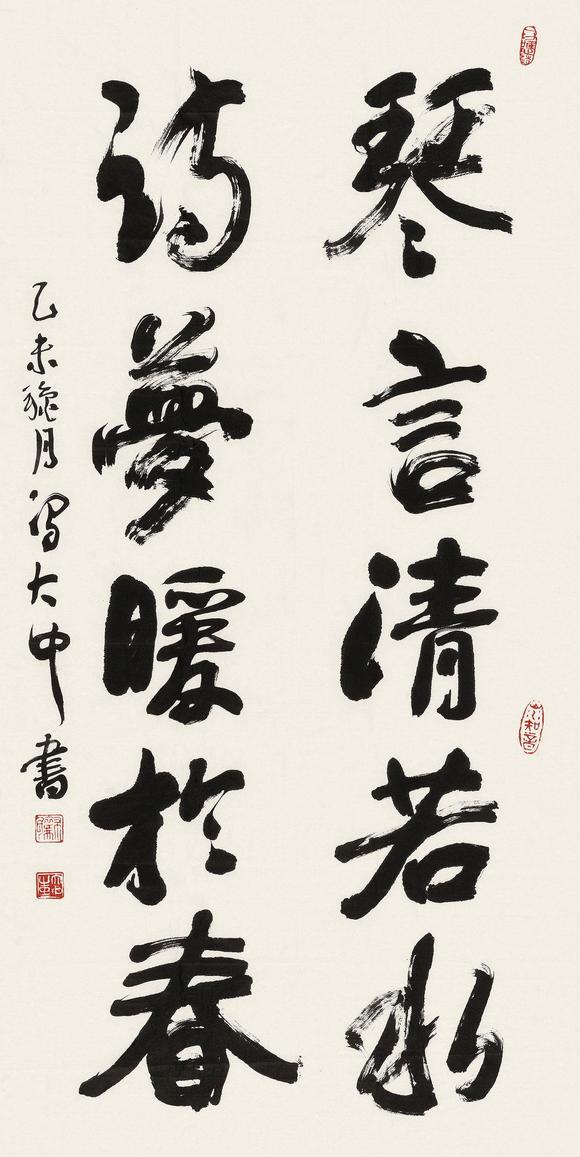 琴言清若水
詩夢暖於春
乙未 月 大中書